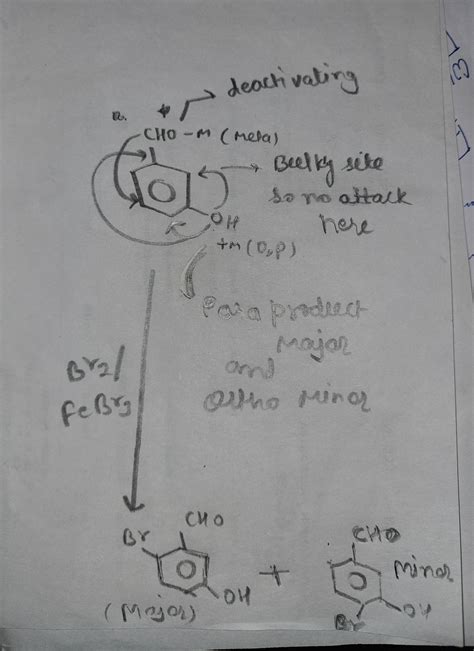 deactivating
CHO - M (Meta)
Bulky site
so no attack
here
OH
+M (O,P)
Para product
Major
and
Ortho Minor
Br2/
FeBr3
CHO
Br
OH
(Major)
+
CHO
Minor
OH
Br